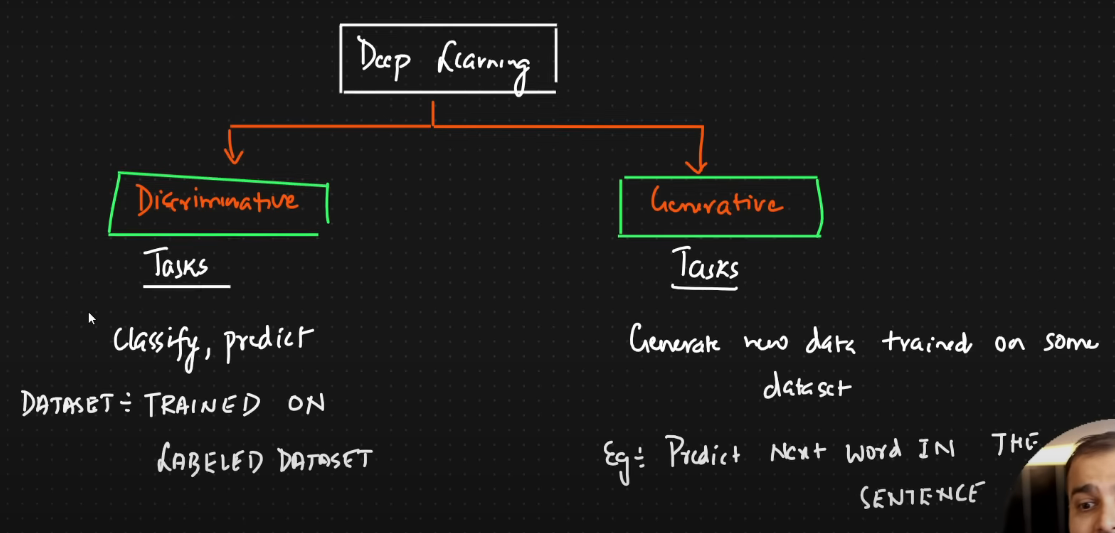 Deep Learning
Discriminative
Generative
Tasks
Classify, predict
DATASET ÷ TRAINED ON
LABELED DATASET
Tasks
Generate new data trained on some
dataset
Eg ÷ Predict Next word IN THE
SENTENCE